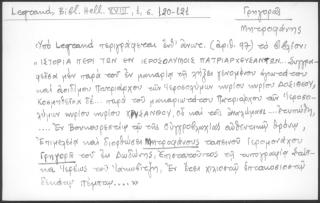 Legrand, Bibl. Hell. XVIII, t. 1. 120-121
Γρηγορᾶς
Μητροφάνης
Ὑπὸ Legrand περιγράφεται ἐνθ' ἀνωτ. (ἀριθ. 97) τὸ βιβλίον:
« ΙΣΤΟΡΙΑ ΠΕΡΙ ΤΩΝ ΕΝ ΙΕΡΟΣΟΛΥΜΟΙΣ ΠΑΤΡΙΑΡΧΕΥΣΑΝΤΩΝ... Συγγρα-
φεῖσα μὲν παρὰ τοῦ ἐν μακαρίᾳ τῇ λήξει γενομένου ἀγιωτάτου
καὶ ἀοιδίμου Πατριάρχου τῶν Ἱεροσολύμων κυρίου κυρίου ΔΟΣΙΘΕΟΥ,
Κοσμηθεῖσα δὲ... παρὰ τοῦ μακαριωτάτου Πατριάρχου τῶν Ἱεροσο-
λύμων κυρίου κυρίου ΧΡΥΣΑΝΘΟΥ, οὗ καὶ τοῖς ἀναλώμασι... ἐτυπώθη,
....Ἐν Βουκουρεστίῳ τῷ τῆς Οὐγγροβλαχίας αὐθεντικῷ θρόνῳ,
Ἐπιμελείᾳ καὶ διορθώσει Μητροφάνους ταπεινοῦ Ἱερομονάχου
Γρηγορᾶ τοῦ ἐκ Δωδώνης, Ἐπιστατοῦντος τῇ τυπογραφίᾳ
Ἱερέως τοῦ Ἐν ἔτει χιλιοστῷ ἑπτακοσιοστῷ
δεκάτῳ πέμπτῳ.... »